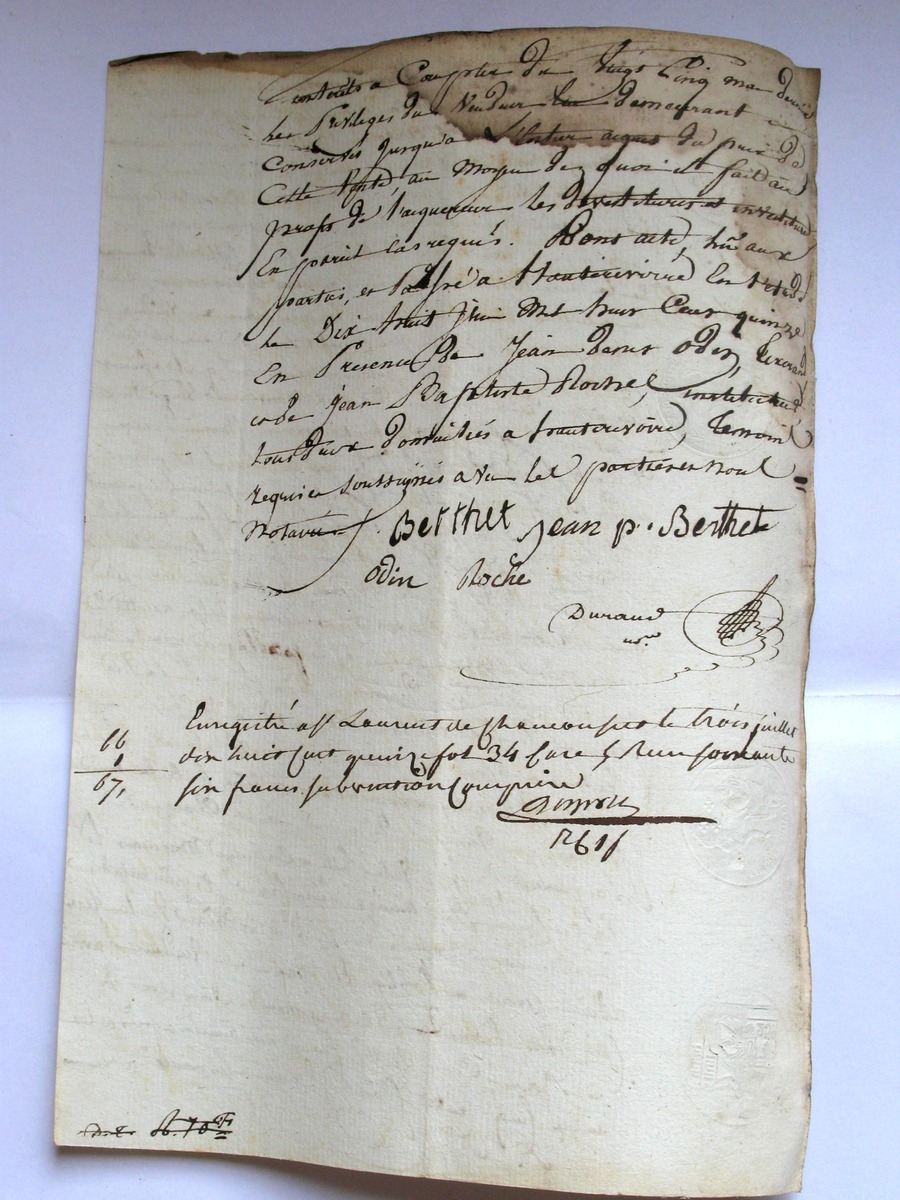 contrats a Compter du Vingt Cinq mai dernier
les Privileges du Vendeur lui demeurant
Conservés jusqu'a l'Entier aquit du prix de
Cette Vente, au Moyen de quoi il fait au
profit de l'acquereur les devestitures et investiture
En pareil Cas requis. Dont acte, lu aux
parties, et Passé a Hauterivoire En l'etude
le Dix huit juin Mil huit Cent quinze
En Presence de Jean Odin,
et de Jean Baptiste Roche, instituteur,
tous deux domiciliés a hauterivoire, temoins
requis soussignés avec les parties et nous
Notaire
Berthet Jean p. Berthet
odin Roche
Durand
nre
Enregistré a St Laurent de chamousset le trois juillet
dix huit cent quinze fol 34 Case 5 Recu soixante
six francs subvention Comprise
66
1
67,